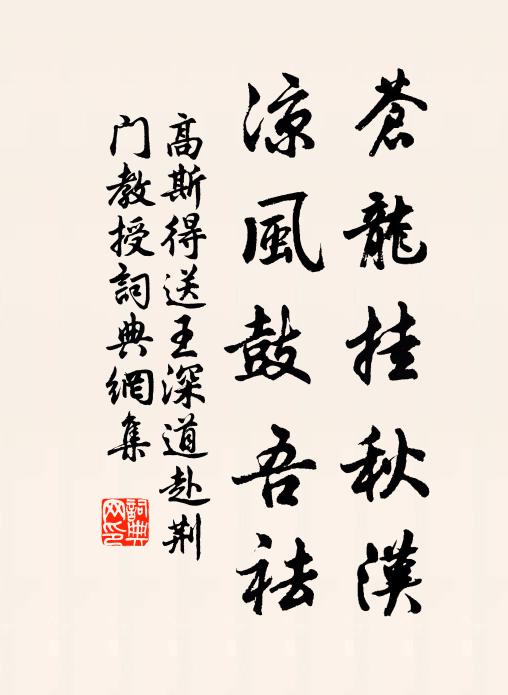 蒼龍挂秋漢
涼風鼓吾袪
高斯得送王深道赴荆
门教授詞典網集
詞典网印